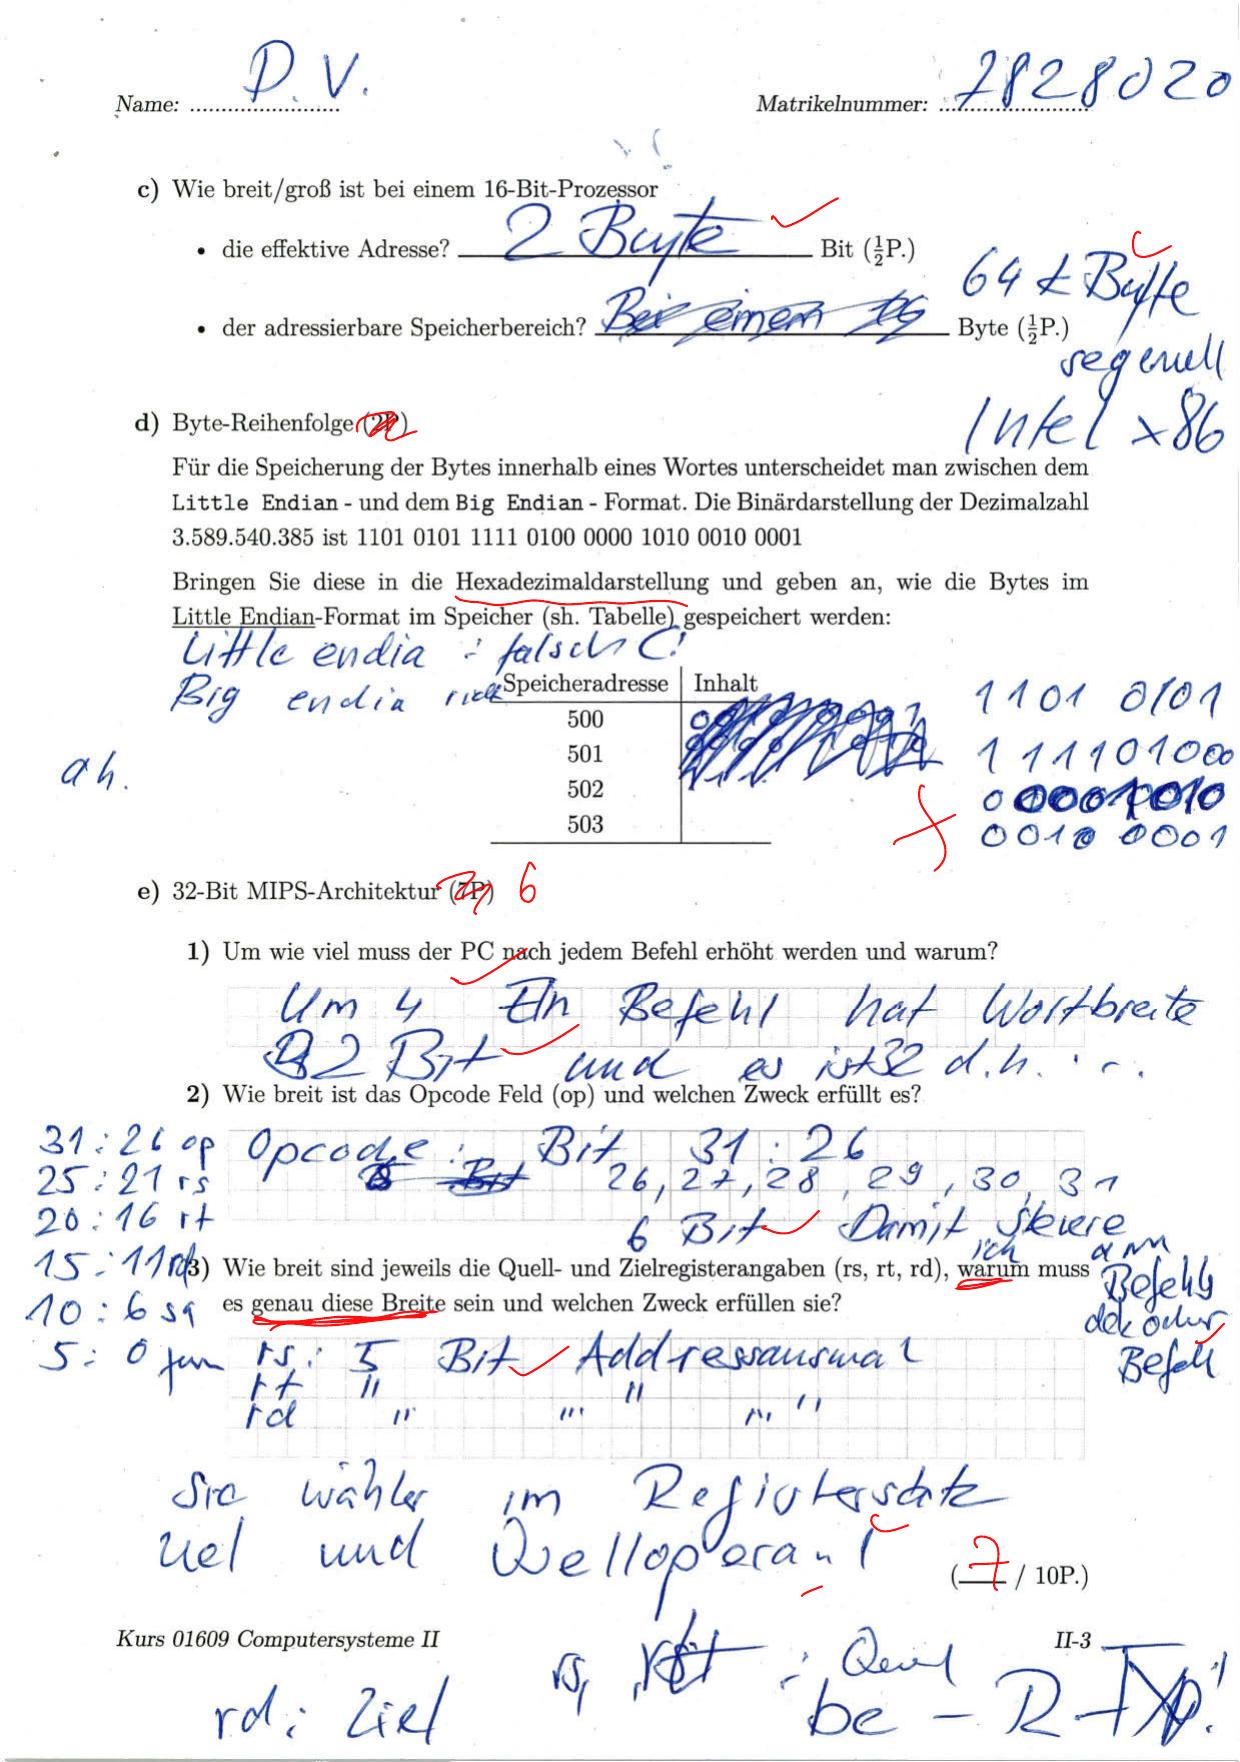 Name: D. V.
Matrikelnummer: 7828020
c) Wie breit/groß ist bei einem 16-Bit-Prozessor
• die effektive Adresse? 2 Byte Bit (½P.)
64 k Byte
• der adressierbare Speicherbereich? Bei einem 16 Byte (½P.)
segenell
Intel x86
d) Byte-Reihenfolge (2P)
Für die Speicherung der Bytes innerhalb eines Wortes unterscheidet man zwischen dem
Little Endian - und dem Big Endian - Format. Die Binärdarstellung der Dezimalzahl
3.589.540.385 ist 1101 0101 1111 0100 0000 1010 0010 0001
Bringen Sie diese in die Hexadezimaldarstellung und geben an, wie die Bytes im
Little Endian-Format im Speicher (sh. Tabelle) gespeichert werden:
Little endia : falsch C!
Big endia
Speicheradresse Inhalt
500
501
502
503
1101 0101
1 11101000
0 00001010
0010 0001
d h.
e) 32-Bit MIPS-Architektur (7P) 6
1) Um wie viel muss der PC nach jedem Befehl erhöht werden und warum?
Um 4 Ein Befehl hat Wortbreite
32 Bit und es ist 32 d.h. . . .
2) Wie breit ist das Opcode Feld (op) und welchen Zweck erfüllt es?
31:26 op
25:21 rs
20:16 rt
15:11 rd
10:6 sa
5:0 fun
Opcode: Bit 31:26
Bit 26, 27, 28, 29, 30, 31
6 Bit Damit steuere
ich am
Befehls
dekoder
Befehl
3) Wie breit sind jeweils die Quell- und Zielregisterangaben (rs, rt, rd), warum muss
es genau diese Breite sein und welchen Zweck erfüllen sie?
rs: 5 Bit Addressauswal
rt " "
rd " " "
Sie wähler im Registersatz
ziel und Quelloperan
(7 / 10P.)
Kurs 01609 Computersysteme II
II-3
rs, rt : Quel
rd: Ziel
be - R-Typ!